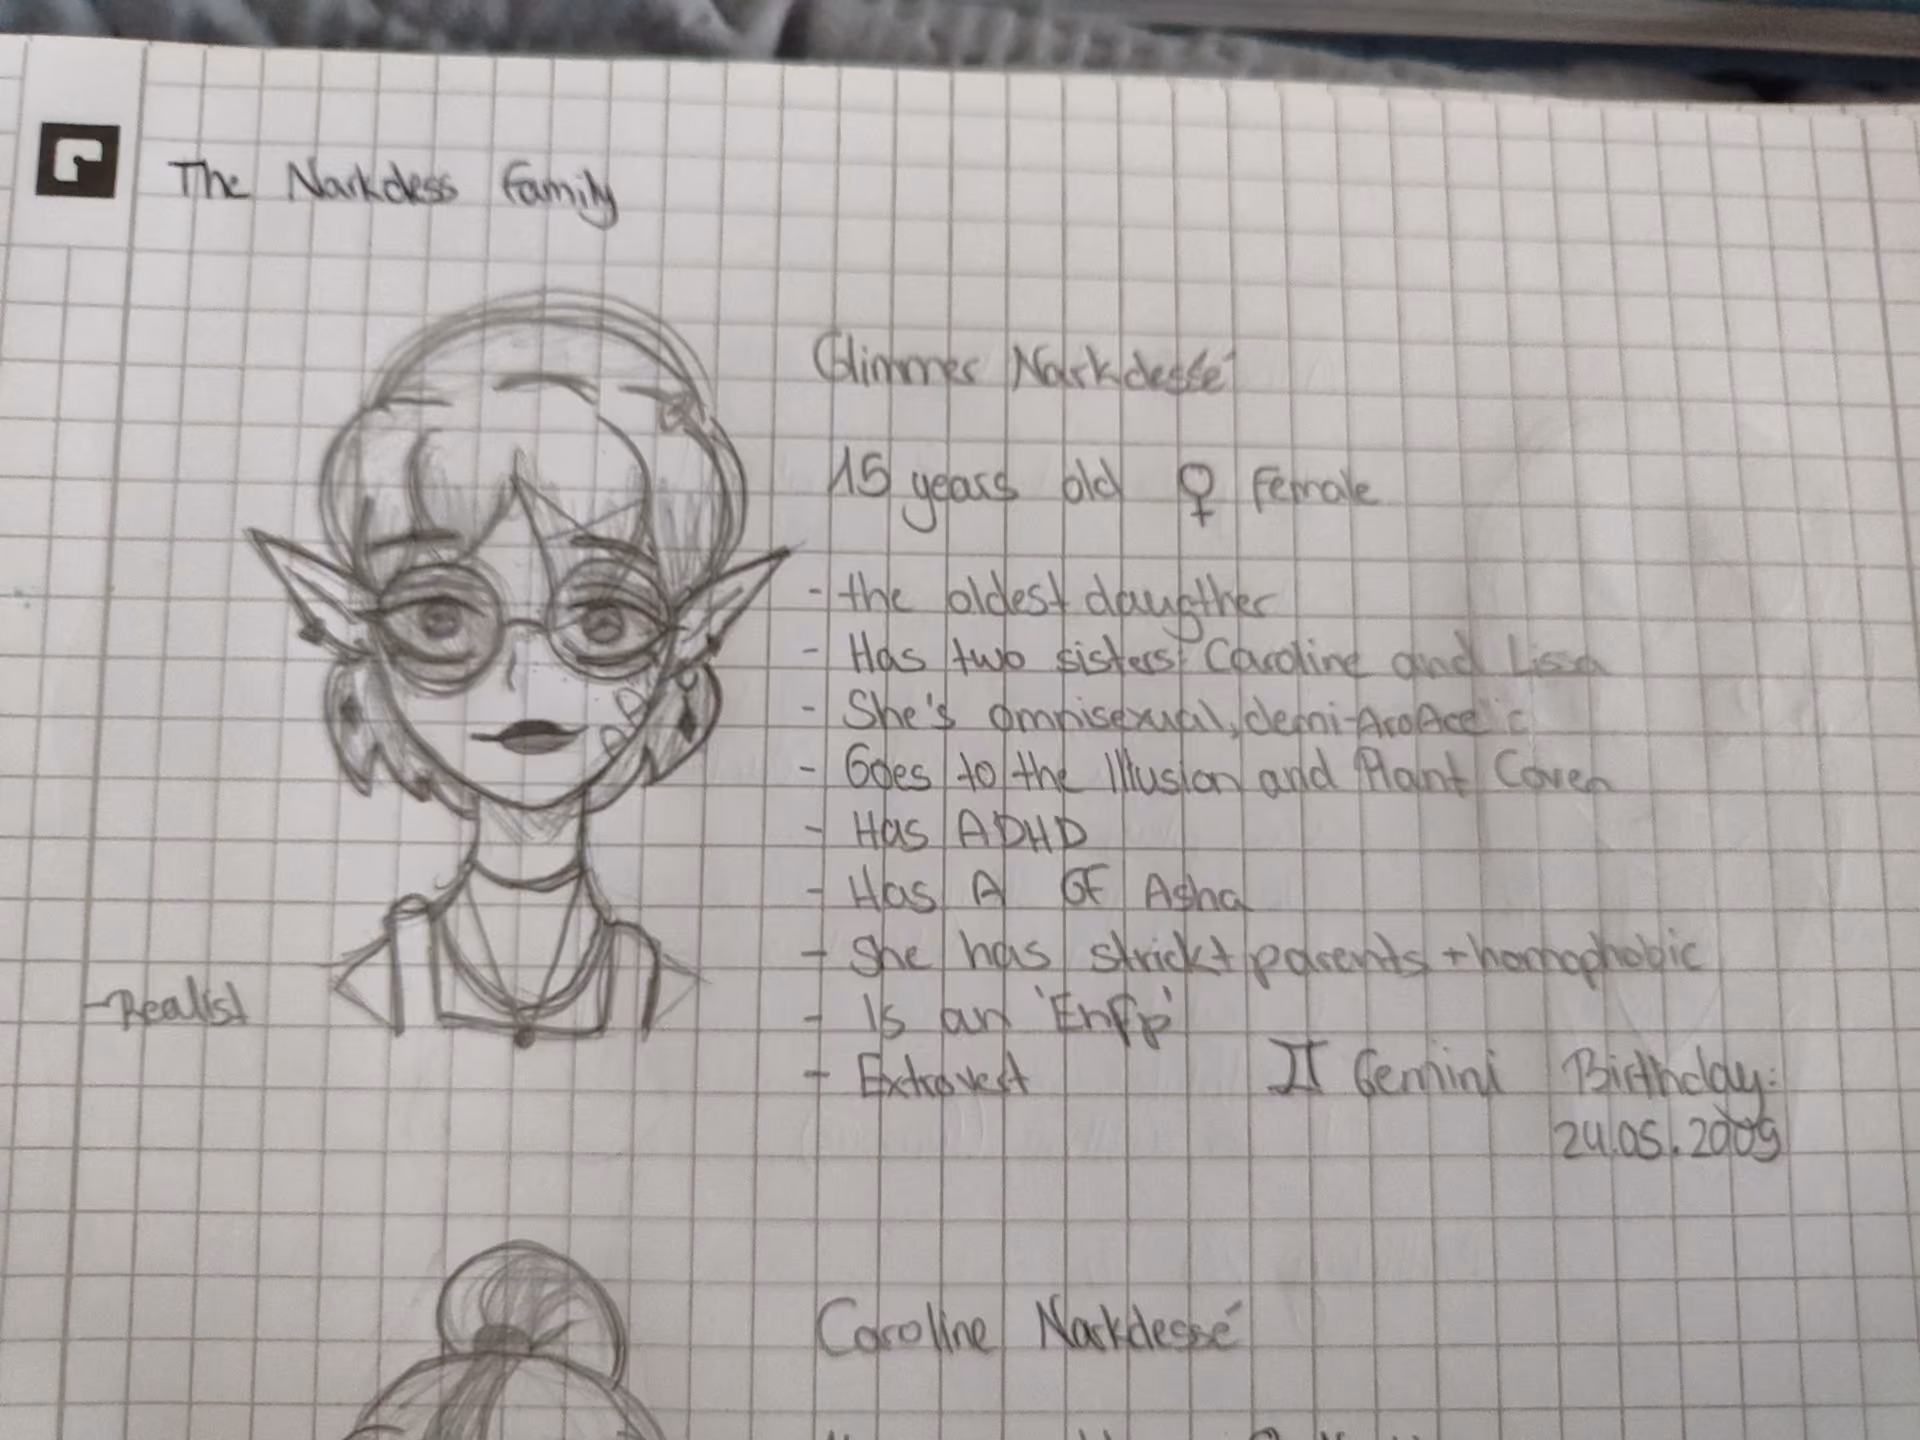 The Narkdess Family
Glimmer Narkdessé
15 years old ♀ Female
- the oldest daugther
- Has two sisters: Caroline and Lissa
- She's omnisexual, demi-AroAce
- Goes to the Illusion and Plant Coven
- Has ADHD
- Has A GF Asha
- She has strickt parents + homophobic
- Realist
- Is an 'Enfp'
- Extrovert
♊ Gemini Birthday:
24.05.2009
Caroline Narkdessé